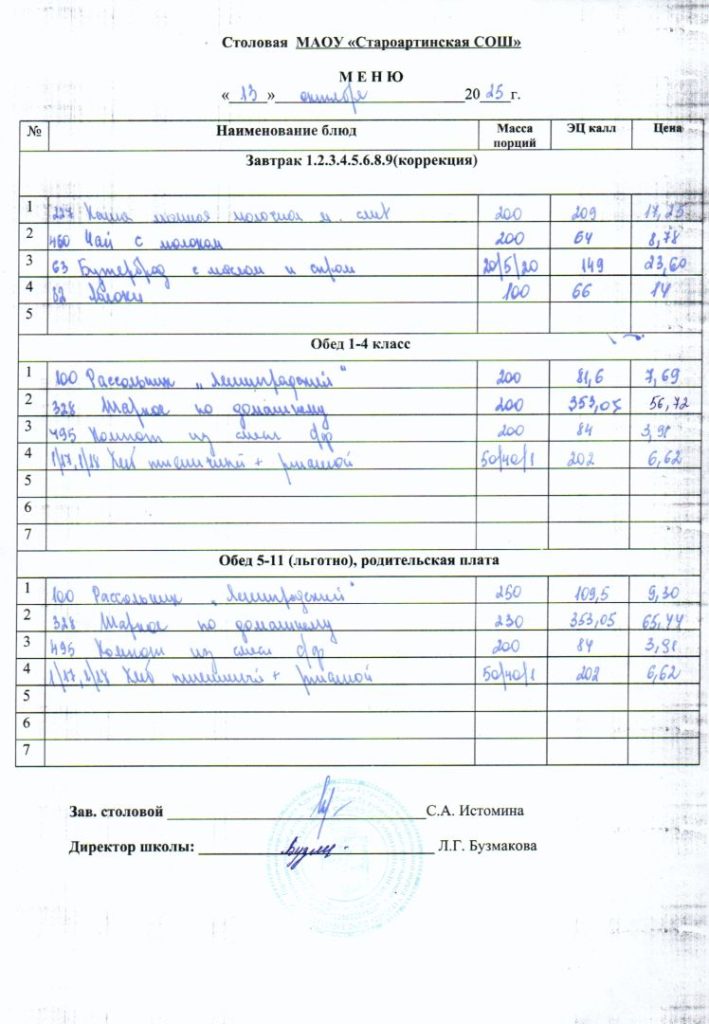 Столовая МАОУ «Староартинская СОШ»
М Е Н Ю
« 13 » октября 2025 г.
№ Наименование блюд Масса порций ЭЦ калл Цена
Завтрак 1.2.3.4.5.6.8.9(коррекция)
1 227 Каша манная молочная м. слив 200 209 17,25
2 460 Чай с молоком 200 64 8,78
3 63 Бутерброд с маслом и сыром 20/5/20 149 23,60
4 82 Яблоки 100 66 14
5
Обед 1-4 класс
1 100 Рассольник „Ленинградский" 200 81,6 7,69
2 328 Жаркое по домашнему 200 353,05 56,72
3 495 Компот из смеси с/ф 200 84 3,91
4 Хлеб пшеничный + ржаной 50/40/1 202 6,62
5
6
7
Обед 5-11 (льготно), родительская плата
1 100 Рассольник „Ленинградский" 250 109,5 9,30
2 328 Жаркое по домашнему 230 353,05 65,44
3 495 Компот из смеси с/ф 200 84 3,91
4 Хлеб пшеничный + ржаной 50/40/1 202 6,62
5
6
7
Зав. столовой С.А. Истомина
Директор школы: Л.Г. Бузмакова